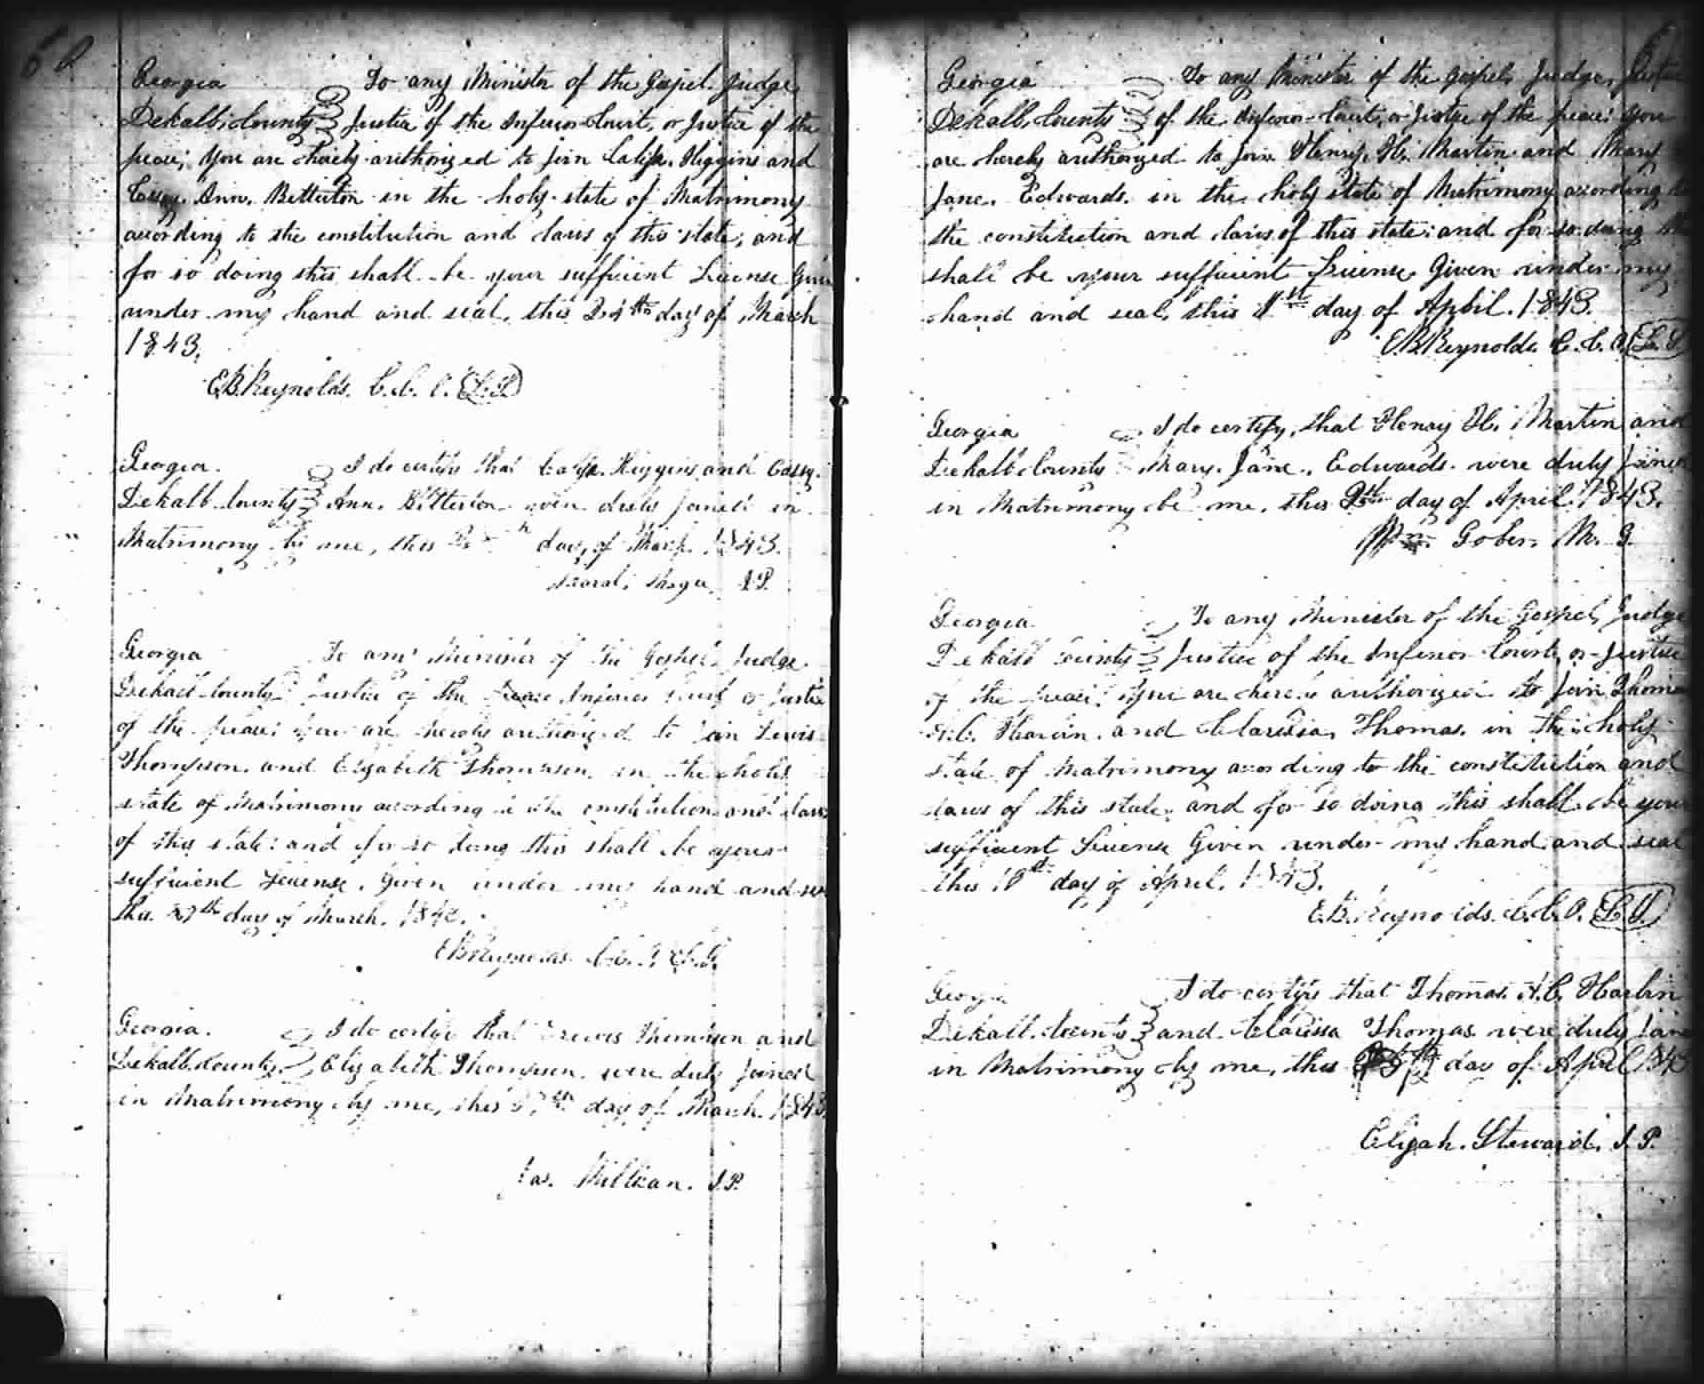 60
Georgia To any Minister of the Gospel, Judge,
Dekalb, County Justice of the Inferior Court, or Justice of the
peace; You are hereby authorized to join Higgins and
Ann. Betterton in the holy state of Matrimony
according to the constitution and laws of this state; and
for so doing this shall be your sufficient License Given
under my hand and seal, this 24th day of March
1843.
E.B. Reynolds. C. C. O. (L.S.)
Georgia. I do certify that Higgins and Cassy.
Dekalb County Ann. Betterton were duly joined in
Matrimony by me, this day, of March 1843.
J.P.
Georgia To any Minister of the Gospel, Judge
Dekalb County Justice of the Inferior Court or Justice
of the peace; you are hereby authorized to join Lewis
Thompson. and Elizabeth Thompson. in the holy
state of Matrimony according to the constitution and laws
of this state: and for so doing this shall be your
sufficient License. Given under my hand and
this 27th day of March. 1843.
E B Reynolds C.C.O. L.S.
Georgia. I do certify that Lewis Thompson and
Dekalb. County Elizabeth Thompson. were duly joined
in Matrimony by me, this 27th day of March. 1843.
Jas. Millican. J.P.
Georgia To any Minister of the gospel, Judge,
Dekalb, County of the Inferior Court, or Justice of the peace: You
are hereby authorized to join Henry. H. Martin and Mary
Jane. Edwards. in the holy state of Matrimony according
the constitution and laws of this state: and for so doing
shall be your sufficient License, Given under my
hand and seal, this day of April. 1843.
E.B. Reynolds. C.C.O. (L.S)
Georgia I do certify, that Henry H. Martin and
Dekalb County Mary. Jane. Edwards. were duly joined
in Matrimony be me, this 9th day of April. 1843.
Wm. Gober. M. G.
Georgia To any Minister of the Gospel, Judge
Dekalb County Justice of the Inferior Court, or Justice
of the peace: you are hereby authorized to join Thomas
H.C. Harlin. and Clarissa, Thomas. in the holy
state of Matrimony according to the constitution and
laws of this state. and for so doing this shall be your
sufficient License Given under my hand and seal
this day of April. 1843.
E.B. Reynolds. C.C.O. (L.S.)
Georgia I do certify that Thomas H.C. Harlin
Dekalb. County and Clarissa Thomas were duly
in Matrimony by me, this day of April 1843
Elijah. Steward. J.P.